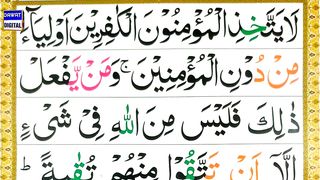 DAWAT
DIGITAL
لَا يَتَّخِذِ الْمُؤْمِنُوْنَ الْكٰفِرِيْنَ اَوْلِيَآءَ
مِنْ دُوْنِ الْمُؤْمِنِيْنَ ۚ وَمَنْ يَّفْعَلْ
ذٰلِكَ فَلَيْسَ مِنَ اللّٰهِ فِىْ شَىْءٍ
اِلَّاۤ اَنْ تَتَّقُوْا مِنْهُمْ تُقٰىةً ؕ